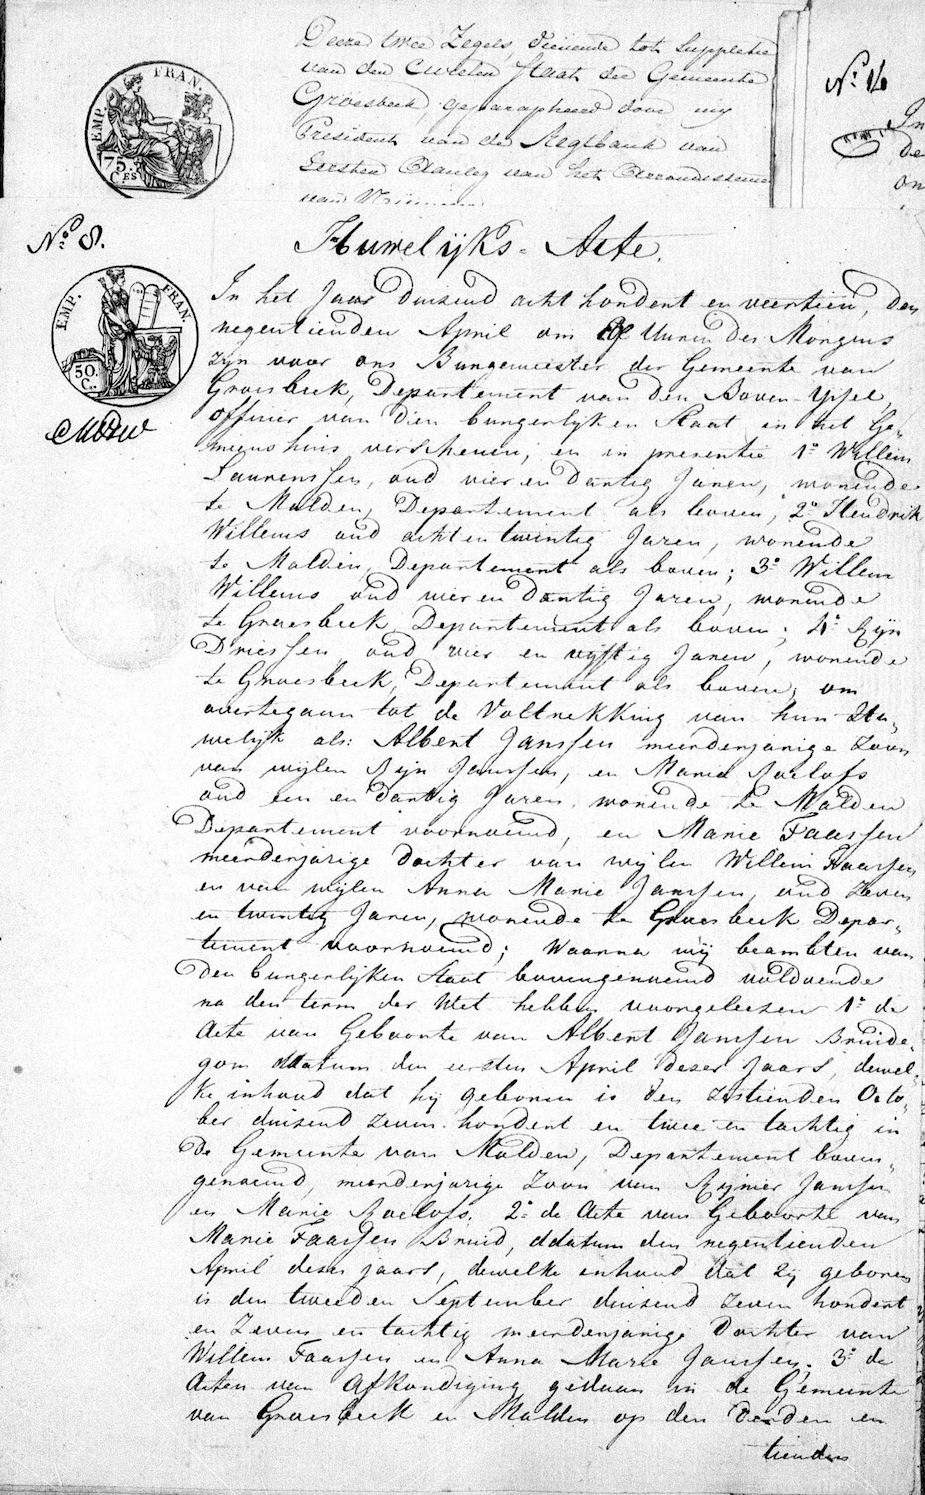 Deeze twee Zegels, dienende tot suppletie
van den Civielen Staat der Gemeente
Groesbeek, geparapheerd door my
President van de Regtbank van
Eersten Aanleg van het Arrondissement
van
EMP. FRAN.
75.
CES
No. 16
In
de
on
No. 8.
Huwelijks-Acte.
EMP. FRAN.
50.
C.
In het Jaar Duisend acht hondert en veertien, den
negentienden April om Uuren des Morgens
zijn voor ons Burgemeester der Gemeente van
Groesbeek, Departement van den Boven-Yssel,
officier van den burgerlyken Staat in het Ge-
meenshuis verscheenen, en in presentie 1o Willem
Laurenssen, oud vier en dartig Jaren, wonende
te Malden, Departement als boven; 2o Hendrik
Willems oud acht en twintig Jaren, wonende
te Malden, Departement als boven; 3o Willem
Willems oud vier en dartig Jaren, wonende
te Groesbeek, Departement als boven; 4o Rijn
Driessen oud vier en vyftig Jaren, wonende
te Groesbeek, Departement als boven, om
overtegaan tot de Voltrekking van hun Hu-
welijk als: Albert Janssen meerderjarige Zoon
van wijlen Rijn Janssen, en Maria Roelofs
oud een en dartig Jaren wonende te Malden
Departement voornoemd, en Marie Faassen
meerderjarige dochter van wijlen Willem Faassen
en van wijlen Anna Marie Janssen, oud Zeven
en twintig Jaren, wonende te Groesbeek Depar-
tement voornoemd; Waarna wij beambten van
den burgerlijken Staat bovengenoemd voldoende
na den term der Wet hebben voorgeleesen 1o de
Acte van Geboorte van Albert Janssen Bruide-
gom ddatum den eersten April dezer Jaars, dewel-
ke inhoud dat hij geboren is den zestienden Octo-
ber duisend zeven hondert en twee en tachtig in
de Gemeente van Malden, Departement boven-
genoemd, meerderjarige Zoon van Rijnier Janssen
en Marie Roelofs. 2o de Acte van Geboorte van
Marie Faassen Bruid, ddatum den negentienden
April dezer jaars, dewelke inhoud dat zij geboren
is den tweeden September duisend Zeven hondert
en Zeven en tachtig meerderjarige Dochter van
Willem Faassen en Anna Marie Janssen; 3o de
Acten van Afkondiging gedaan in de Gemeente
van Groesbeek en Malden op den derden en
tienden